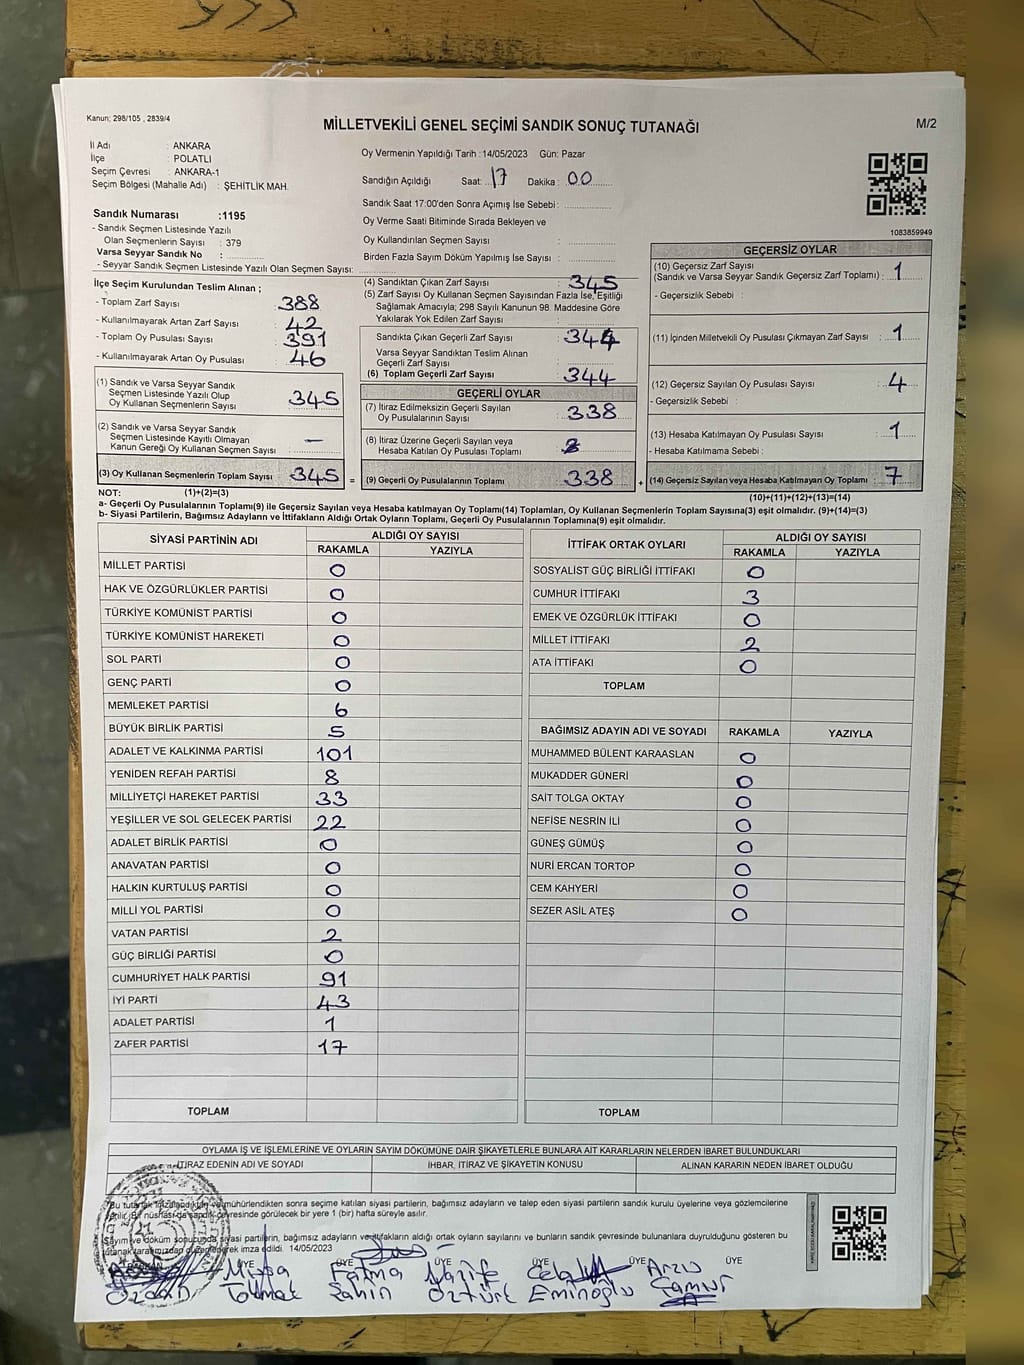 Kanun; 298/105 , 2839/4
MİLLETVEKİLİ GENEL SEÇİMİ SANDIK SONUÇ TUTANAĞI
M/2
İl Adı : ANKARA
İlçe : POLATLI
Seçim Çevresi : ANKARA-1
Seçim Bölgesi (Mahalle Adı) : ŞEHİTLİK MAH.
Oy Vermenin Yapıldığı Tarih : 14/05/2023 Gün: Pazar
Sandığın Açıldığı Saat: 17 Dakika : 00
Sandık Saat 17:00'den Sonra Açımış İse Sebebi :
Oy Verme Saati Bitiminde Sırada Bekleyen ve
Oy Kullandırılan Seçmen Sayısı :
Birden Fazla Sayım Döküm Yapılmış İse Sayısı :
1083859949
Sandık Numarası :1195
- Sandık Seçmen Listesinde Yazılı
Olan Seçmenlerin Sayısı : 379
Varsa Seyyar Sandık No :
- Seyyar Sandık Seçmen Listesinde Yazılı Olan Seçmen Sayısı:
İlçe Seçim Kurulundan Teslim Alınan ;
- Toplam Zarf Sayısı 388
- Kullanılmayarak Artan Zarf Sayısı 42
- Toplam Oy Pusulası Sayısı 391
- Kullanılmayarak Artan Oy Pusulası 46
(1) Sandık ve Varsa Seyyar Sandık
Seçmen Listesinde Yazılı Olup
Oy Kullanan Seçmenlerin Sayısı 345
(2) Sandık ve Varsa Seyyar Sandık
Seçmen Listesinde Kayıtlı Olmayan
Kanun Gereği Oy Kullanan Seçmen Sayısı : —
(3) Oy Kullanan Seçmenlerin Toplam Sayısı 345 =
(4) Sandıktan Çıkan Zarf Sayısı : 345
(5) Zarf Sayısı Oy Kullanan Seçmen Sayısından Fazla İse, Eşitliği
Sağlamak Amacıyla; 298 Sayılı Kanunun 98. Maddesine Göre
Yakılarak Yok Edilen Zarf Sayısı :
Sandıkta Çıkan Geçerli Zarf Sayısı : 344
Varsa Seyyar Sandıktan Teslim Alınan
Geçerli Zarf Sayısı :
(6) Toplam Geçerli Zarf Sayısı : 344
GEÇERLİ OYLAR
(7) İtiraz Edilmeksizin Geçerli Sayılan
Oy Pusulalarının Sayısı : 338
(8) İtiraz Üzerine Geçerli Sayılan veya
Hesaba Katılan Oy Pusulası Toplamı :
(9) Geçerli Oy Pusulalarının Toplamı : 338 +
GEÇERSİZ OYLAR
(10) Geçersiz Zarf Sayısı
(Sandık ve Varsa Seyyar Sandık Geçersiz Zarf Toplamı) : 1
- Geçersizlik Sebebi :
(11) İçinden Milletvekili Oy Pusulası Çıkmayan Zarf Sayısı : 1
(12) Geçersiz Sayılan Oy Pusulası Sayısı : 4
- Geçersizlik Sebebi :
(13) Hesaba Katılmayan Oy Pusulası Sayısı : 1
- Hesaba Katılmama Sebebi :
(14) Geçersiz Sayılan veya Hesaba Katılmayan Oy Toplamı : 7
NOT: (1)+(2)=(3)
(10)+(11)+(12)+(13)=(14)
a- Geçerli Oy Pusulalarının Toplamı(9) ile Geçersiz Sayılan veya Hesaba Katılmayan Oy Toplamı(14) Toplamları, Oy Kullanan Seçmenlerin Toplam Sayısına(3) eşit olmalıdır. (9)+(14)=(3)
b- Siyasi Partilerin, Bağımsız Adayların ve İttifakların Aldığı Ortak Oyların Toplamı, Geçerli Oy Pusulalarının Toplamına(9) eşit olmalıdır.
SİYASİ PARTİNİN ADI ALDIĞI OY SAYISI
RAKAMLA YAZIYLA
MİLLET PARTİSİ 0
HAK VE ÖZGÜRLÜKLER PARTİSİ 0
TÜRKİYE KOMÜNİST PARTİSİ 0
TÜRKİYE KOMÜNİST HAREKETİ 0
SOL PARTİ 0
GENÇ PARTİ 0
MEMLEKET PARTİSİ 6
BÜYÜK BİRLİK PARTİSİ 5
ADALET VE KALKINMA PARTİSİ 101
YENİDEN REFAH PARTİSİ 8
MİLLİYETÇİ HAREKET PARTİSİ 33
YEŞİLLER VE SOL GELECEK PARTİSİ 22
ADALET BİRLİK PARTİSİ 0
ANAVATAN PARTİSİ 0
HALKIN KURTULUŞ PARTİSİ 0
MİLLİ YOL PARTİSİ 0
VATAN PARTİSİ 2
GÜÇ BİRLİĞİ PARTİSİ 0
CUMHURİYET HALK PARTİSİ 91
İYİ PARTİ 43
ADALET PARTİSİ 1
ZAFER PARTİSİ 17
TOPLAM
İTTİFAK ORTAK OYLARI ALDIĞI OY SAYISI
RAKAMLA YAZIYLA
SOSYALİST GÜÇ BİRLİĞİ İTTİFAKI 0
CUMHUR İTTİFAKI 3
EMEK VE ÖZGÜRLÜK İTTİFAKI 0
MİLLET İTTİFAKI 2
ATA İTTİFAKI 0
TOPLAM
BAĞIMSIZ ADAYIN ADI VE SOYADI RAKAMLA YAZIYLA
MUHAMMED BÜLENT KARAASLAN 0
MUKADDER GÜNERİ 0
SAİT TOLGA OKTAY 0
NEFİSE NESRİN İLİ 0
GÜNEŞ GÜMÜŞ 0
NURİ ERCAN TORTOP 0
CEM KAHYERİ 0
SEZER ASİL ATEŞ 0
TOPLAM
OYLAMA İŞ VE İŞLEMLERİNE VE OYLARIN SAYIM DÖKÜMÜNE DAİR ŞİKAYETLERLE BUNLARA AİT KARARLARIN NELERDEN İBARET BULUNDUKLARI
İTİRAZ EDENİN ADI VE SOYADI İHBAR, İTİRAZ VE ŞİKAYETİN KONUSU ALINAN KARARIN NEDEN İBARET OLDUĞU
Bu tutanak imzalandıktan ve mühürlendikten sonra seçime katılan siyasi partilerin, bağımsız adayların ve talep eden siyasi partilerin sandık kurulu üyelerine veya gözlemcilerine
verilir. Bir nüshası da sandık çevresinde görülecek bir yere 1 (bir) hafta süreyle asılır.
Sayım ve döküm sonucunda siyasi partilerin, bağımsız adayların ve ittifakların aldığı ortak oyların sayılarını ve bunların sandık çevresinde bulunanlara duyrulduğunu gösteren bu
tutanak tarafımızdan düzenlenerek imza edildi. 14/05/2023
BAŞKAN ÜYE ÜYE ÜYE ÜYE ÜYE ÜYE
Fatma Nazife Arzu
Özcan Tokmak Şahin Öztürk Eminoğlu